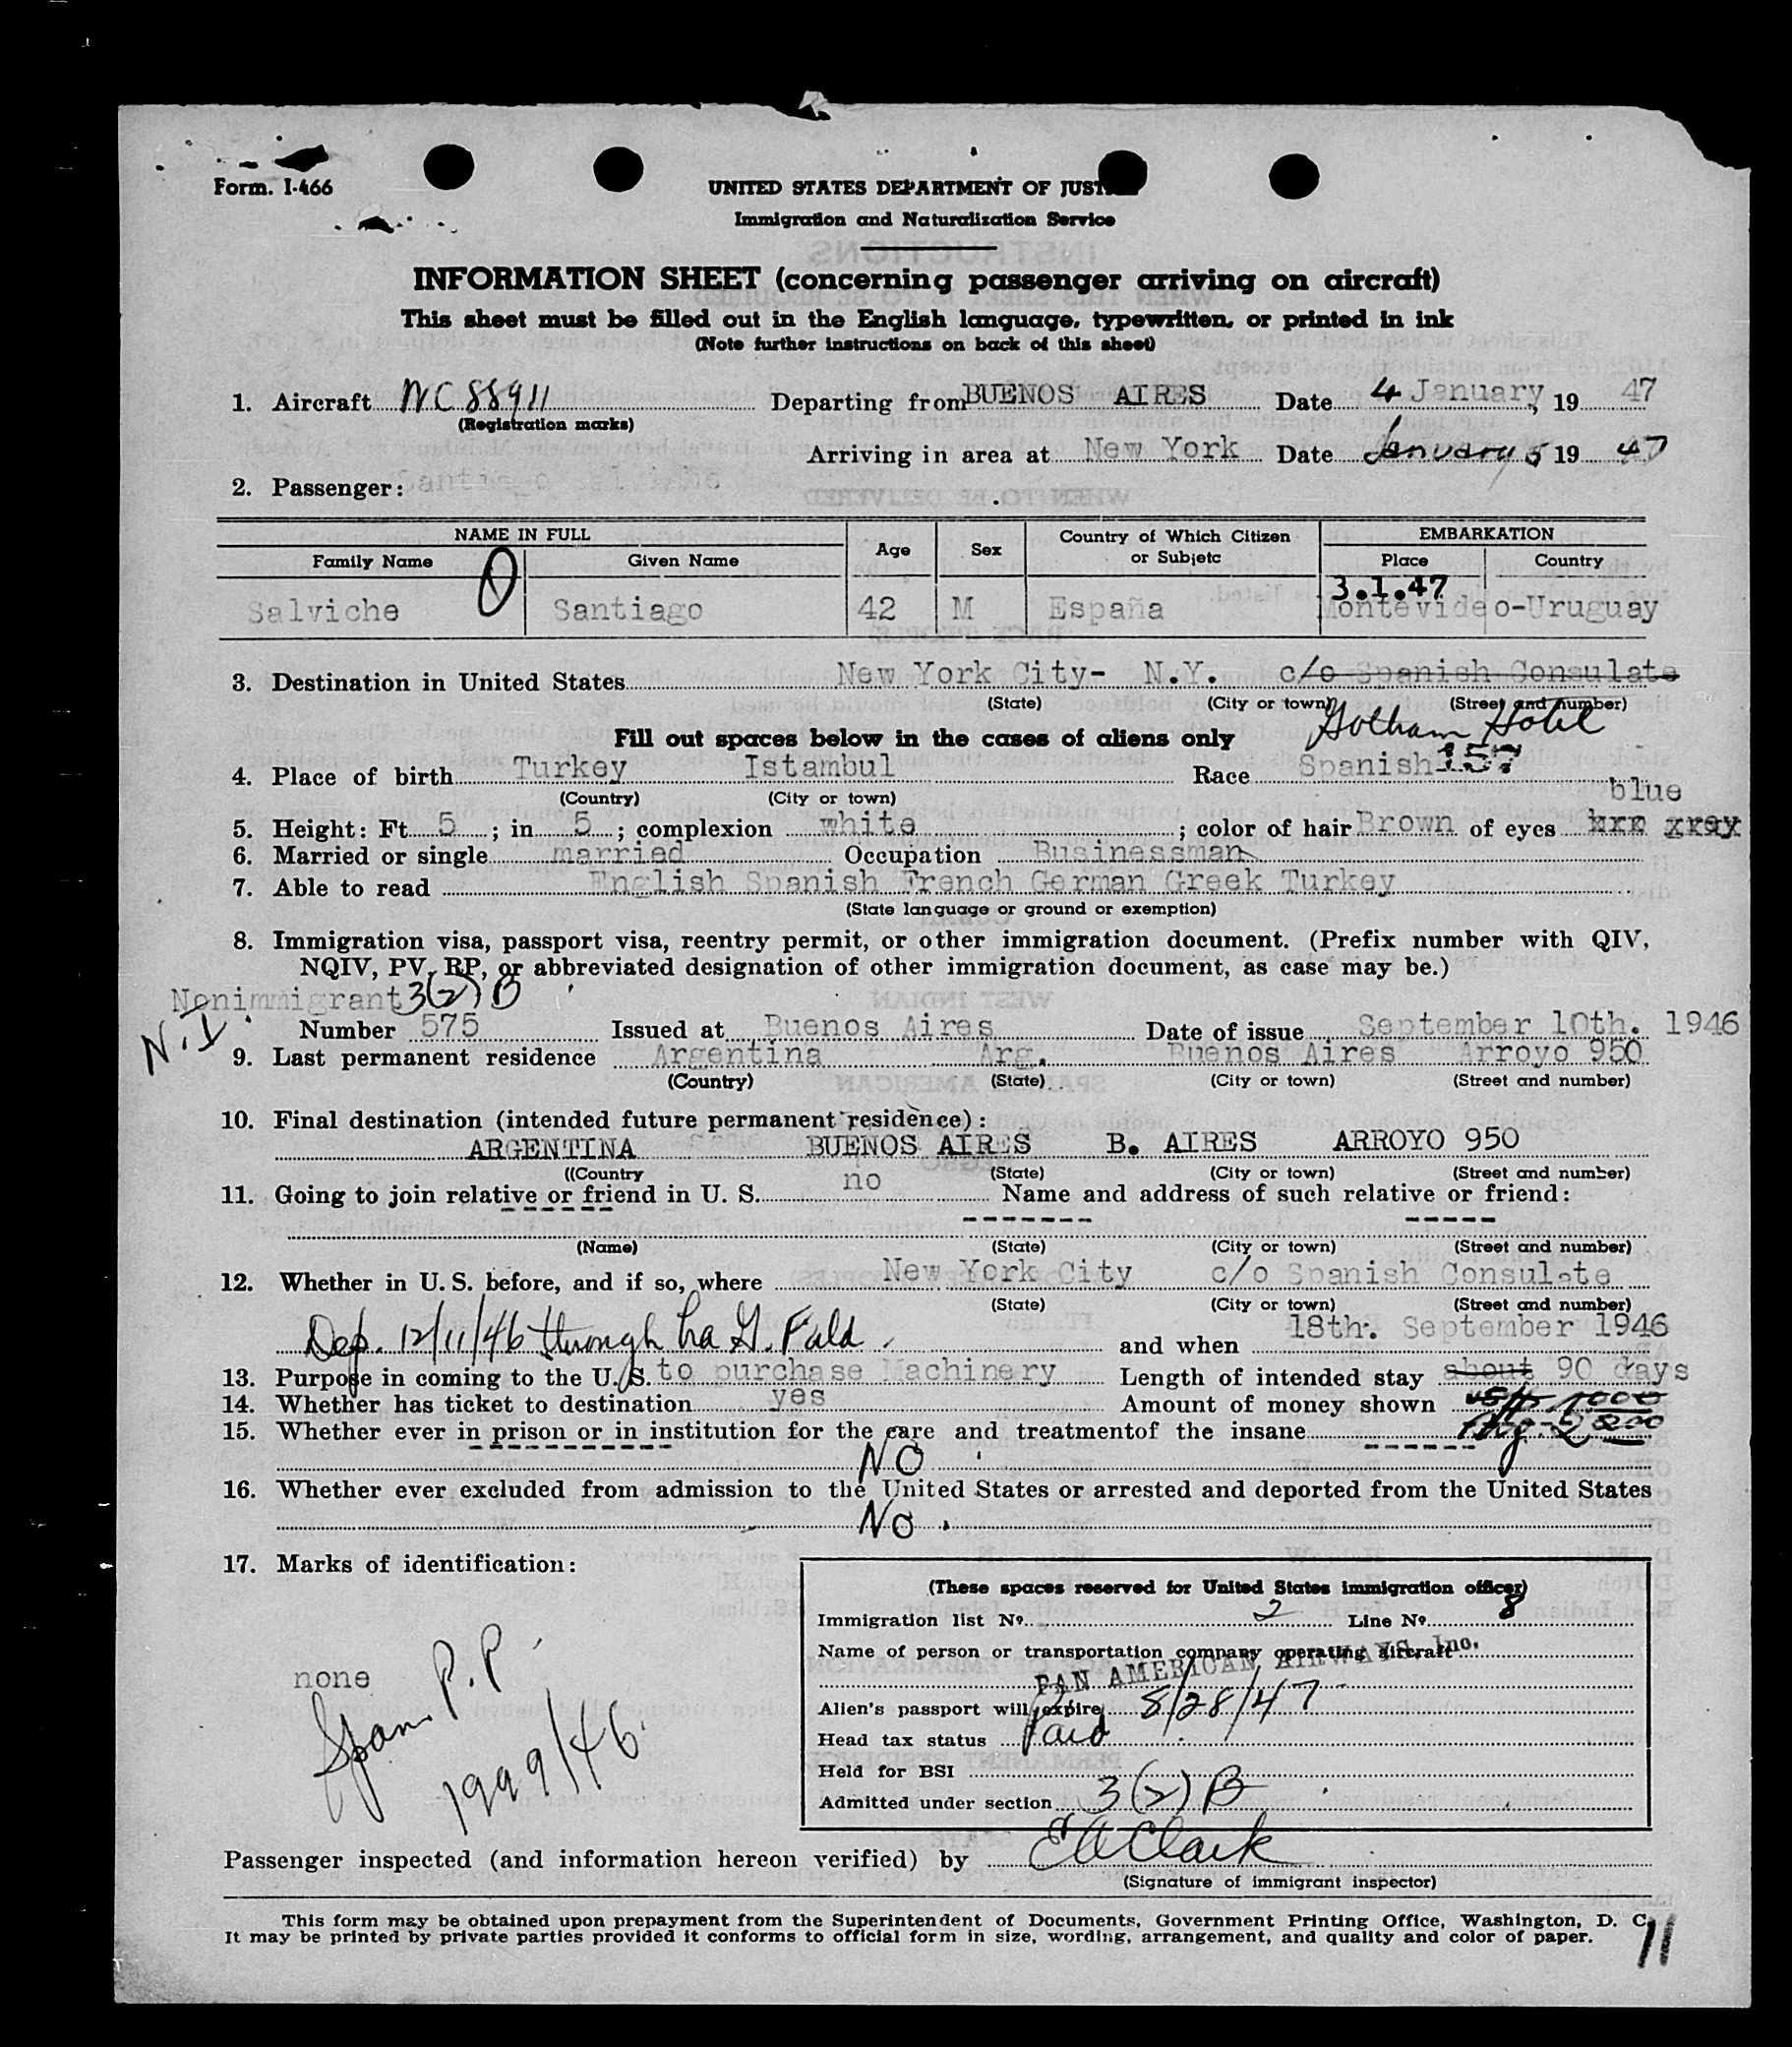 Form. I-466
UNITED STATES DEPARTMENT OF JUST
Immigration and Naturalization Service
INFORMATION SHEET (concerning passenger arriving on aircraft)
This sheet must be filled out in the English language, typewritten, or printed in ink
(Note further instructions on back of this sheet)
1. Aircraft NC88911 Departing from BUENOS AIRES Date 4 January, 19 47
(Registration marks)
Arriving in area at New York Date January 5 19 47
2. Passenger:
NAME IN FULL Age Sex Country of Which Citizen or Subjetc EMBARKATION
Family Name Given Name Place Country
3.1.47
Salviche O Santiago 42 M España Montevideo-Uruguay
3. Destination in United States New York City- N.Y. c/o Spanish Consulate
(State) (City or town) (Street and number)
Gotham Hotel
Fill out spaces below in the cases of aliens only
4. Place of birth Turkey Istambul Race Spanish 157
(Country) (City or town)
blue
5. Height: Ft 5 ; in 5 ; complexion white ; color of hair Brown of eyes
6. Married or single married Occupation Businessman
7. Able to read English Spanish French German Greek Turkey
(State language or ground or exemption)
8. Immigration visa, passport visa, reentry permit, or other immigration document. (Prefix number with QIV,
NQIV, PV, RP, or abbreviated designation of other immigration document, as case may be.)
Nonimmigrant 3(2) B
N.I.
Number 575 Issued at Buenos Aires Date of issue September 10th. 1946
9. Last permanent residence Argentina Arg. Buenos Aires Arroyo 950
(Country) (State) (City or town) (Street and number)
10. Final destination (intended future permanent residence):
ARGENTINA BUENOS AIRES B. AIRES ARROYO 950
((Country (State) (City or town) (Street and number)
11. Going to join relative or friend in U. S. no Name and address of such relative or friend:
(Name) (State) (City or town) (Street and number)
12. Whether in U. S. before, and if so, where New York City c/o Spanish Consulate
(State) (City or town) (Street and number)
Dep. 12/11/46 through La G. Fald. and when 18th. September 1946
13. Purpose in coming to the U. S. to purchase Machinery Length of intended stay about 90 days
14. Whether has ticket to destination yes Amount of money shown
15. Whether ever in prison or in institution for the care and treatmentof the insane
NO
16. Whether ever excluded from admission to the United States or arrested and deported from the United States
No.
17. Marks of identification:
none
Span. P.P.
1999/46
(These spaces reserved for United States immigration officer)
Immigration list No. 2 Line No. 8
Name of person or transportation company operating aircraft
PAN AMERICAN AIRWAYS, Inc.
Alien's passport will expire 8/28/47
Head tax status Paid
Held for BSI
Admitted under section 3(2) B
Passenger inspected (and information hereon verified) by E A Clark
(Signature of immigrant inspector)
This form may be obtained upon prepayment from the Superintendent of Documents, Government Printing Office, Washington, D. C.
It may be printed by private parties provided it conforms to official form in size, wording, arrangement, and quality and color of paper.
11